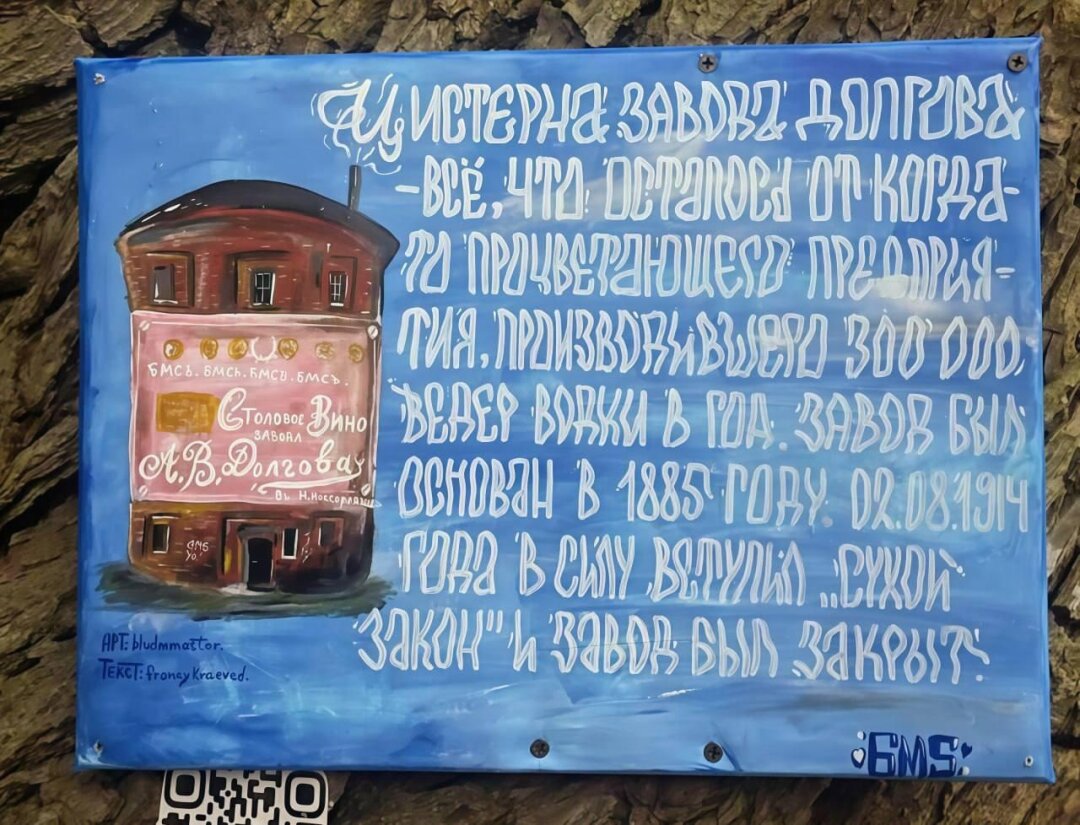 Цистерна завода Долгова
-всё, что осталось от когда-
то процветающего предприя-
тия, производившего 300 000
ведер водки в год. Завод был
основан в 1885 году. 02.08.1914
года в силу вступил „сухой
закон" и завод был закрыт.
БМСЪ. БМСЪ. БМСЪ. БМСЪ.
Столовое Вино
завода
А.В. Долгова
Въ Н.
БМS
Yo!
АРТ: bludmmastor.
ТЕКСТ: froncykraeved.
БМS